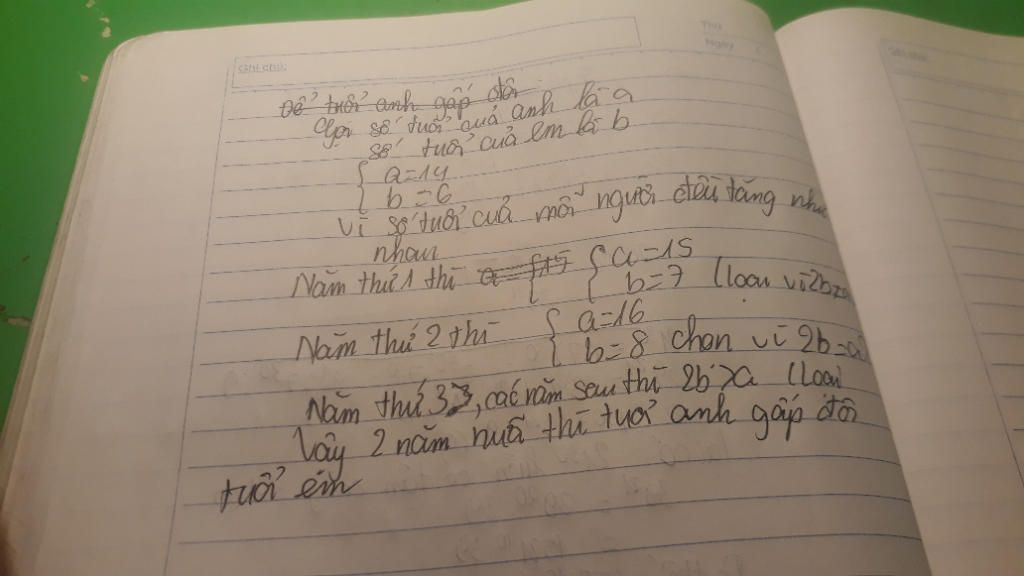 Ghi chú:
Thứ
Ngày
Để tuổi anh gấp đôi
Gọi số tuổi của anh là a
số tuổi của em là b
{ a=14
b=6
Vì số tuổi của mỗi người đều tăng như
nhau
Năm thứ 1 thì a = 15 { a=15
b=7 (loại vì 2b
Năm thứ 2 thì { a=16
b=8 chọn vì 2b=a
Năm thứ 3, các năm sau thì 2b>a (loại
Vậy 2 năm nữa thì tuổi anh gấp đôi
tuổi em